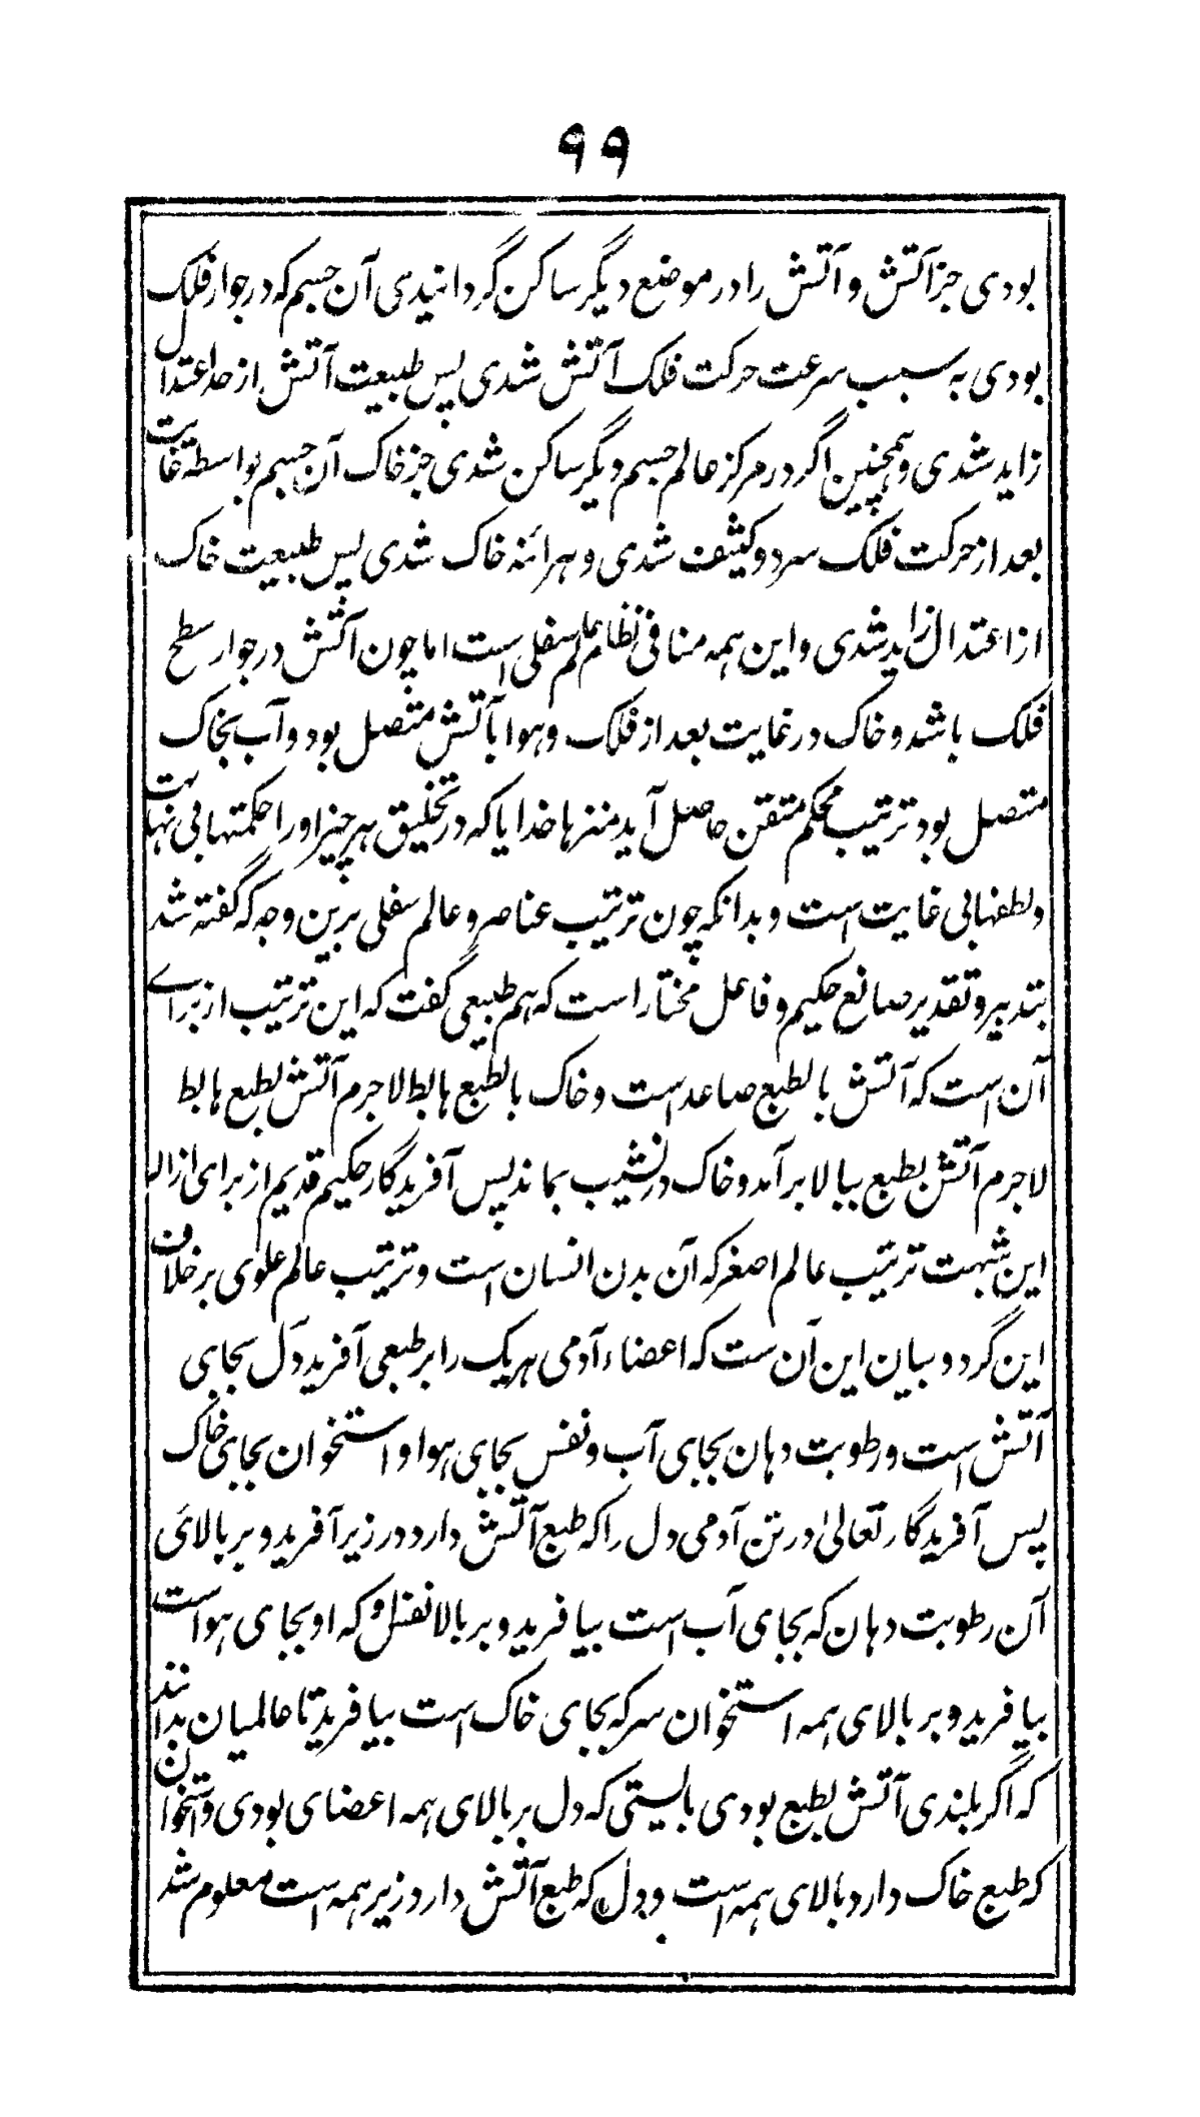 ۹۹
بودی جز آتش و آتش را در موضع دیگر ساکن گردانیدی آن جسم که در جوار فلک
بودی به سبب سرعت حرکت فلک آتش شدی پس طبیعت آتش از حد اعتدال
زاید شدی و همچنین اگر در مرکز عالم جسم دیگر ساکن شدی جز خاک آن جسم بواسطه غایت
بعد از حرکت فلک سرد و کثیف شدی و هرائنه خاک شدی پس طبیعت خاک
از اعتدال زاید شدی و این همه منافی نظام عالم سفلی است اما چون آتش در جوار سطح
فلک باشد و خاک در غایت بعد از فلک و هوا بآتش متصل بود و آب بخاک
متصل بود ترتیب محکم متقن حاصل آید منزها خدایا که در تخلیق هر چیز او را حکمتهابی نهایت
و لطفهابی غایت است و بدانکه چون ترتیب عناصر و عالم سفلی برین وجه که گفته شد
بتدبیر و تقدیر صانع حکیم و فاعل مختار است که هم طبیعی گفت که این ترتیب از برای
آن است که آتش بالطبع صاعد است و خاک بالطبع هابط لاجرم آتش بطبع هابط
لاجرم آتش بطبع ببالا برآمد و خاک در نشیب بماند پس آفریدگار حکیم قدیم از برای ازاله
این شبهت ترتیب عالم اصغر که آن بدن انسان است و ترتیب عالم علوی بر خلاف
این گرد و بیان این آن ست که اعضاء آدمی هر یک را بر طبعی آفرید دل بجای
آتش است و رطوبت دهان بجای آب و نفس بجای هوا و استخوان بجای خاک
پس آفریدگار تعالیٰ در تن آدمی دل را که طبع آتش دارد در زیر آفرید و بر بالائی
آن رطوبت دهان که بجای آب است بیافرید و بر بالا نفس او که او بجای هوا است
بیافرید و بر بالای همه استخوان سر که بجای خاک است بیافرید تا عالمیان بدانند
که اگر بلندی آتش بطبع بودی بالیستی که دل بر بالای همه اعضای بودی و استخوان
که طبع خاک دارد بالای همه است و دل که طبع آتش دارد زیر همه است معلوم شد